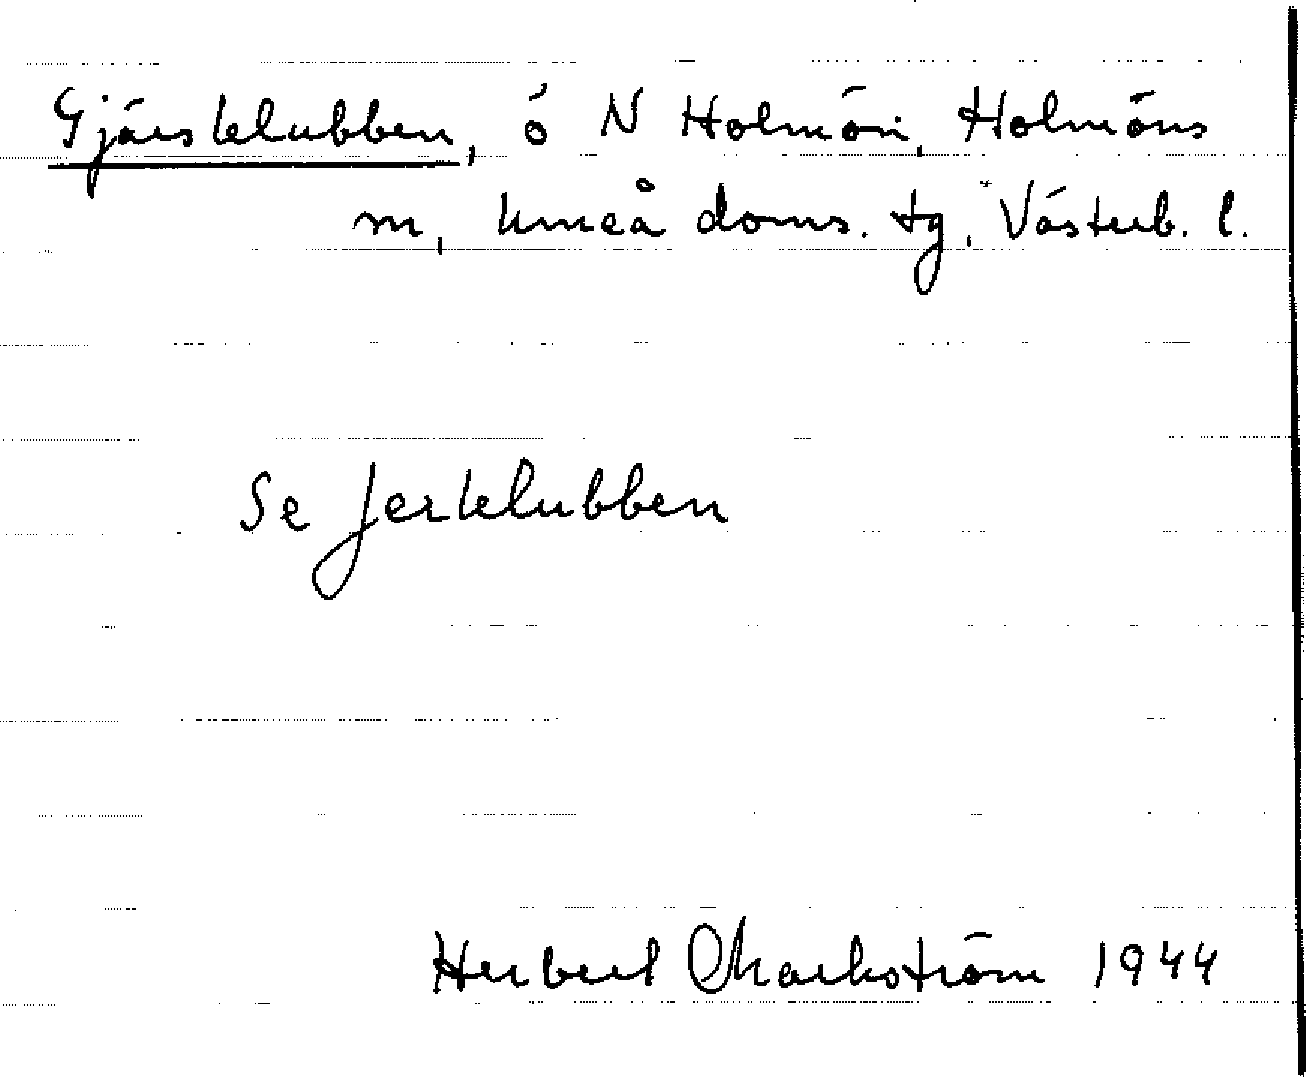 Gjärsklubben, ö N Holmön, Holmöns
m, Umeå doms. tg, Västerb. l.
Se Jerklubben
Herbert Markström 1944